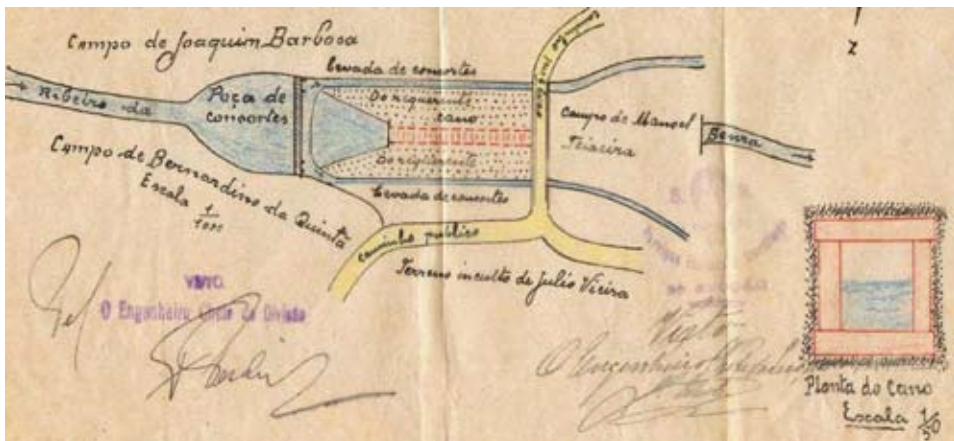 Campo de Joaquim Barbosa
Ribeiro da
Poça de
consortes
Levada de consortes
Do riquerente
cano
Do riqüerente
Levada de consortes
Campo de Manoel
Teixeira
Benza
z
Campo de Bernardino da Quintã
Escala
Caminho publico
Terreno inculto de Julio Vieira
VISTO.
O Engenheiro Chefe da Divisão
Visto
O Engenheiro
Planta do Cano
Escala 1/20